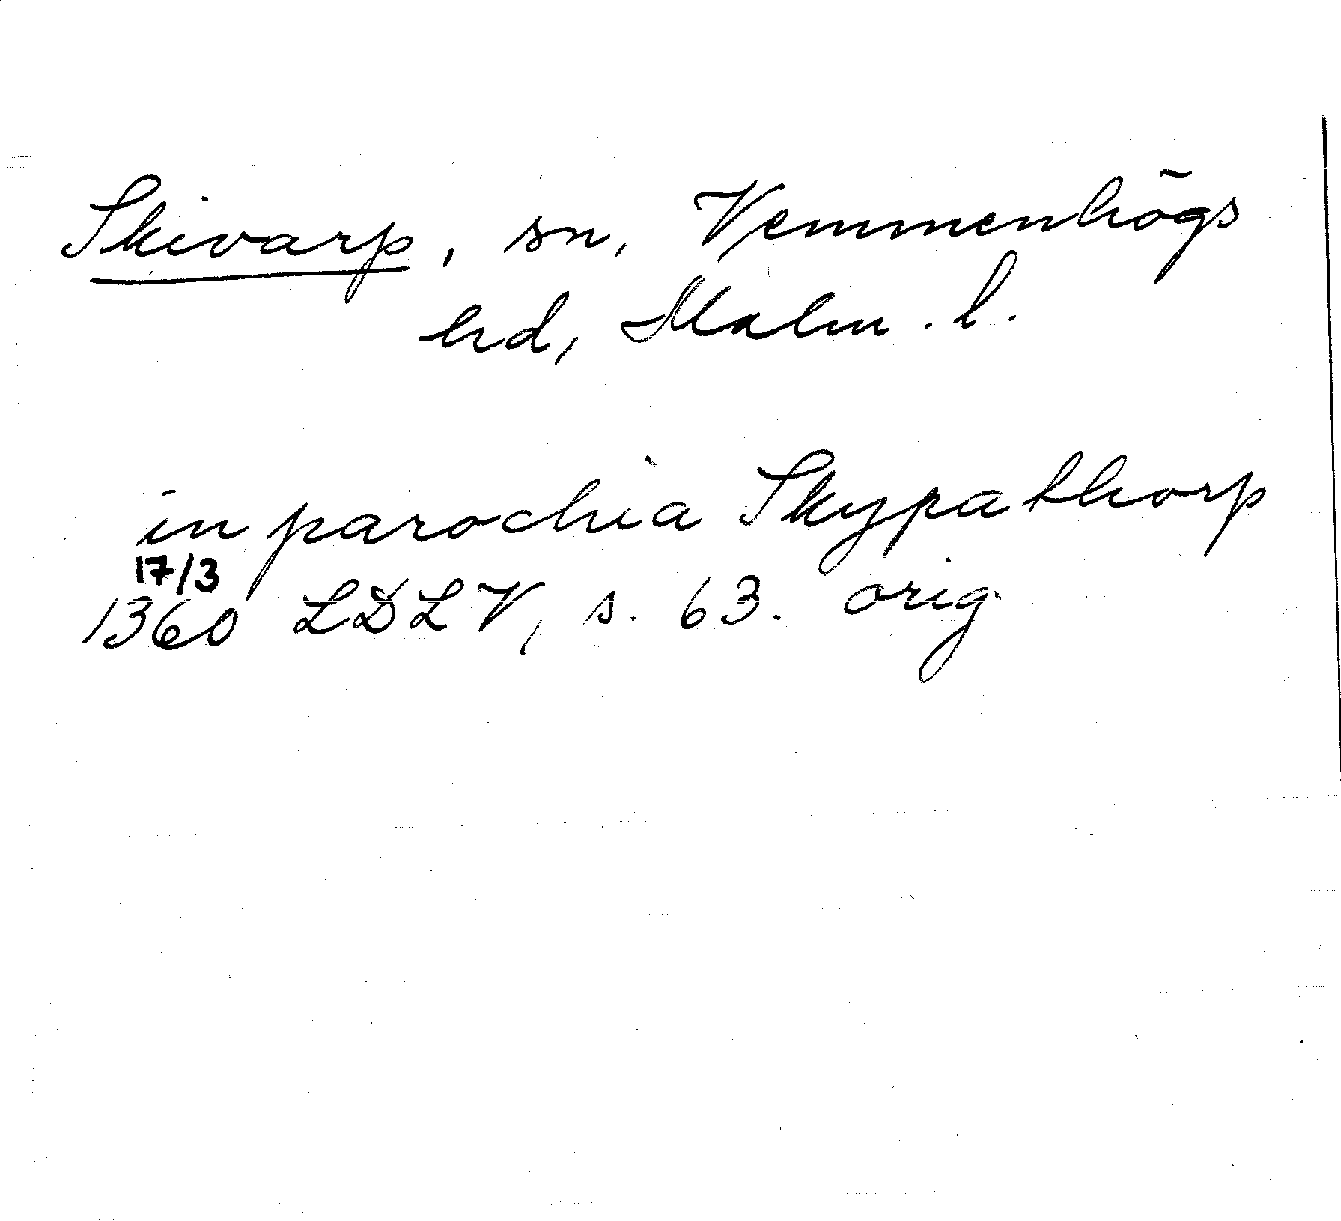 Skivarp, sn, Vemmenhögs
hd, Malm. l.
in parochia Skypathorp
17/3
1360 LDLV, s. 63. orig